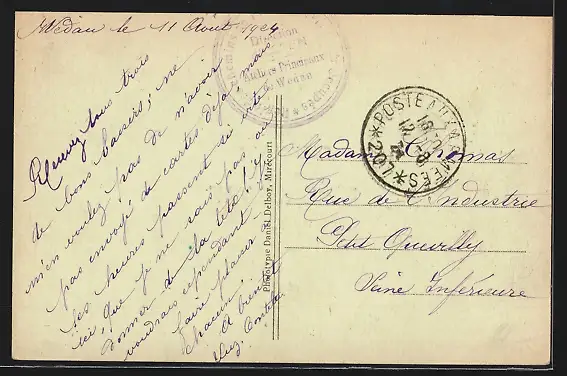 Wedau le 11 Août 1924
Recevez tous trois
de bons baisers ; ne
m'en voulez pas de n'avoir
pas envoyé de cartes déjà mais
les heures passent si vite
ici, que je ne sais pas où
donner de la tête ! J
voudrais cependant
faire plaisir à
chacun
A bientôt
Luz.
Direction
Ateliers Principaux
de Wedau
Phototypie Daniel Delboy, Mirecourt
*POSTE AUX ARMEES*
207
18
12-8
24
Madame Thomas
Rue de l'Industrie
Petit Quevilly
Seine Inférieure